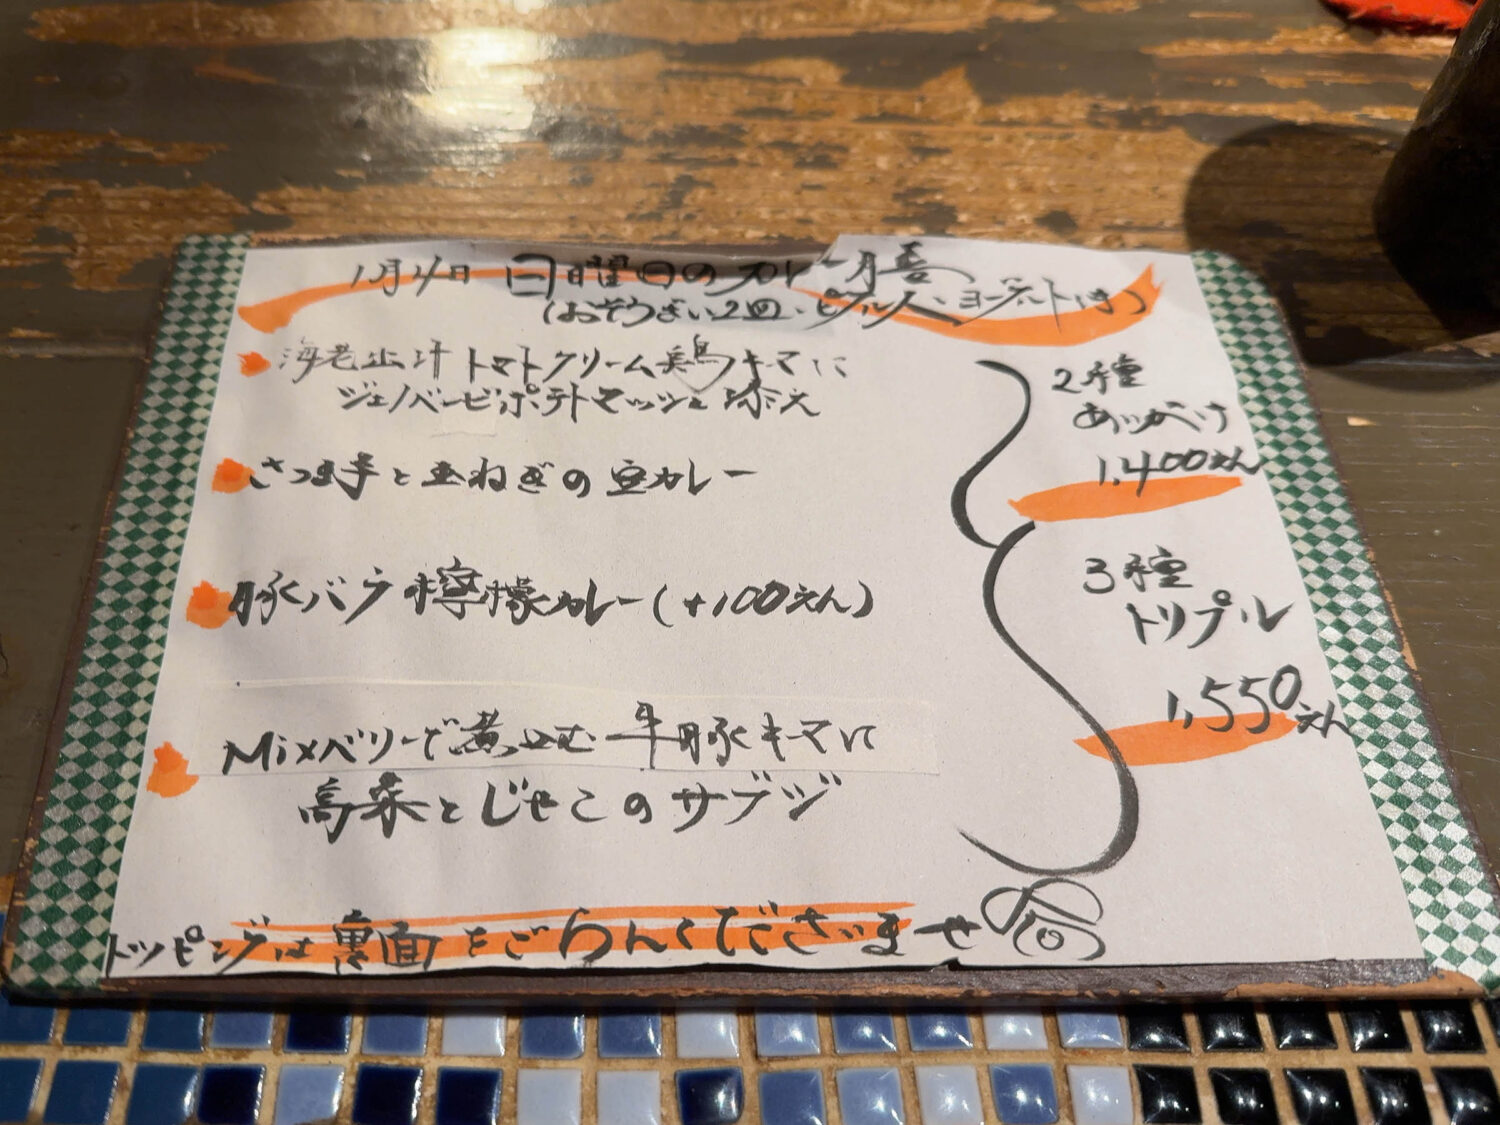 1月4日 日曜日のカレー膳
(おそうざい2皿・ピクルス・ヨーグルト付き)
海老出汁トマトクリーム鶏キーマに
ジェノベーゼポテトマッシュ添え
さつま芋と玉ねぎの豆カレー
豚バラ檸檬カレー(+100えん)
Mixベリーで煮込む牛豚キーマに
高菜とじゃこのサブジ
2種
あいがけ
1,400えん
3種
トリプル
1,550えん
トッピングは裏面をごらんくださいませ